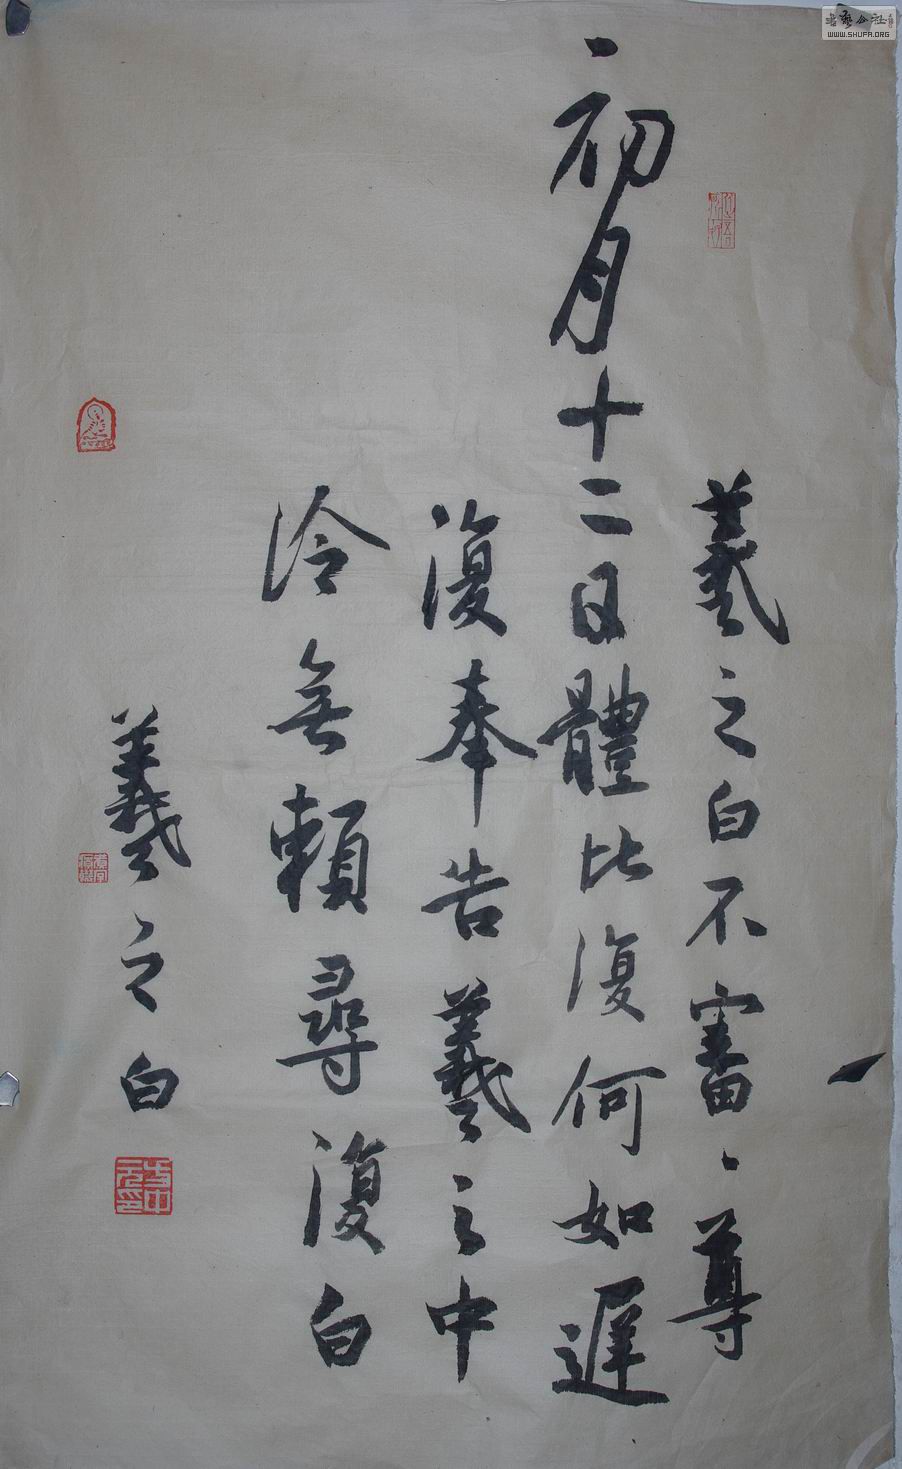 羲之白不審、尊
初月十二日體比復何如遲
復奉告羲之中
冷無賴尋復白
羲之白
WWW.SHUFA.ORG